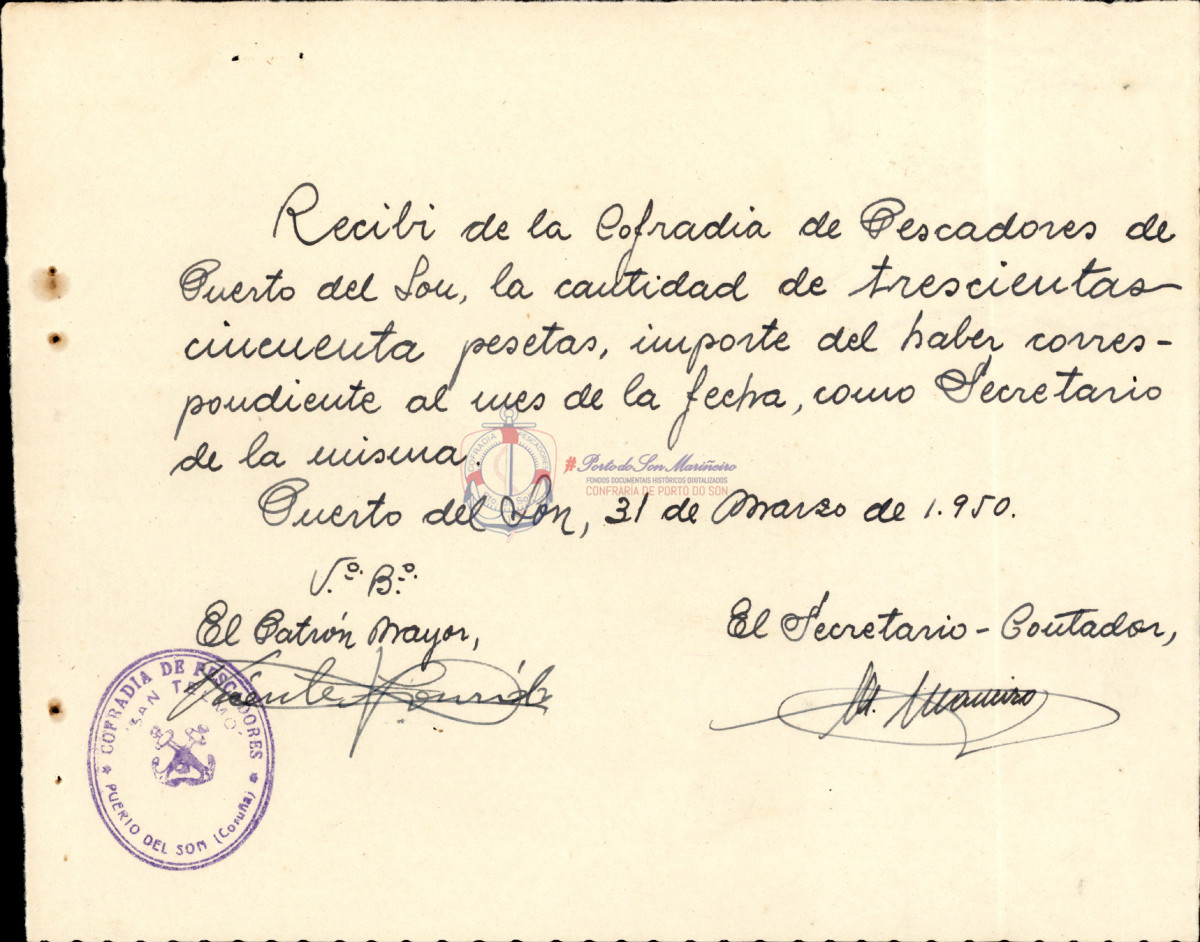 Recibi de la Cofradia de Pescadores de
Puerto del Son, la cantidad de trescientas
cincuenta pesetas, importe del haber corres-
pondiente al mes de la fecha, como Secretario
de la misma.
#Porto do Son Mariñeiro
FONDOS DOCUMENTAIS HISTÓRICOS DIXITALIZADOS
CONFRARÍA DE PORTO DO SON
COFRADIA PESCADORES
Puerto del Son, 31 de Marzo de 1.950.
V.º B.º
El Patrón Mayor,
El Secretario-Contador,
Vicente
M.
COFRADIA DE PESCADORES
"SAN TELMO"
* PUERTO DEL SON (Coruña) *